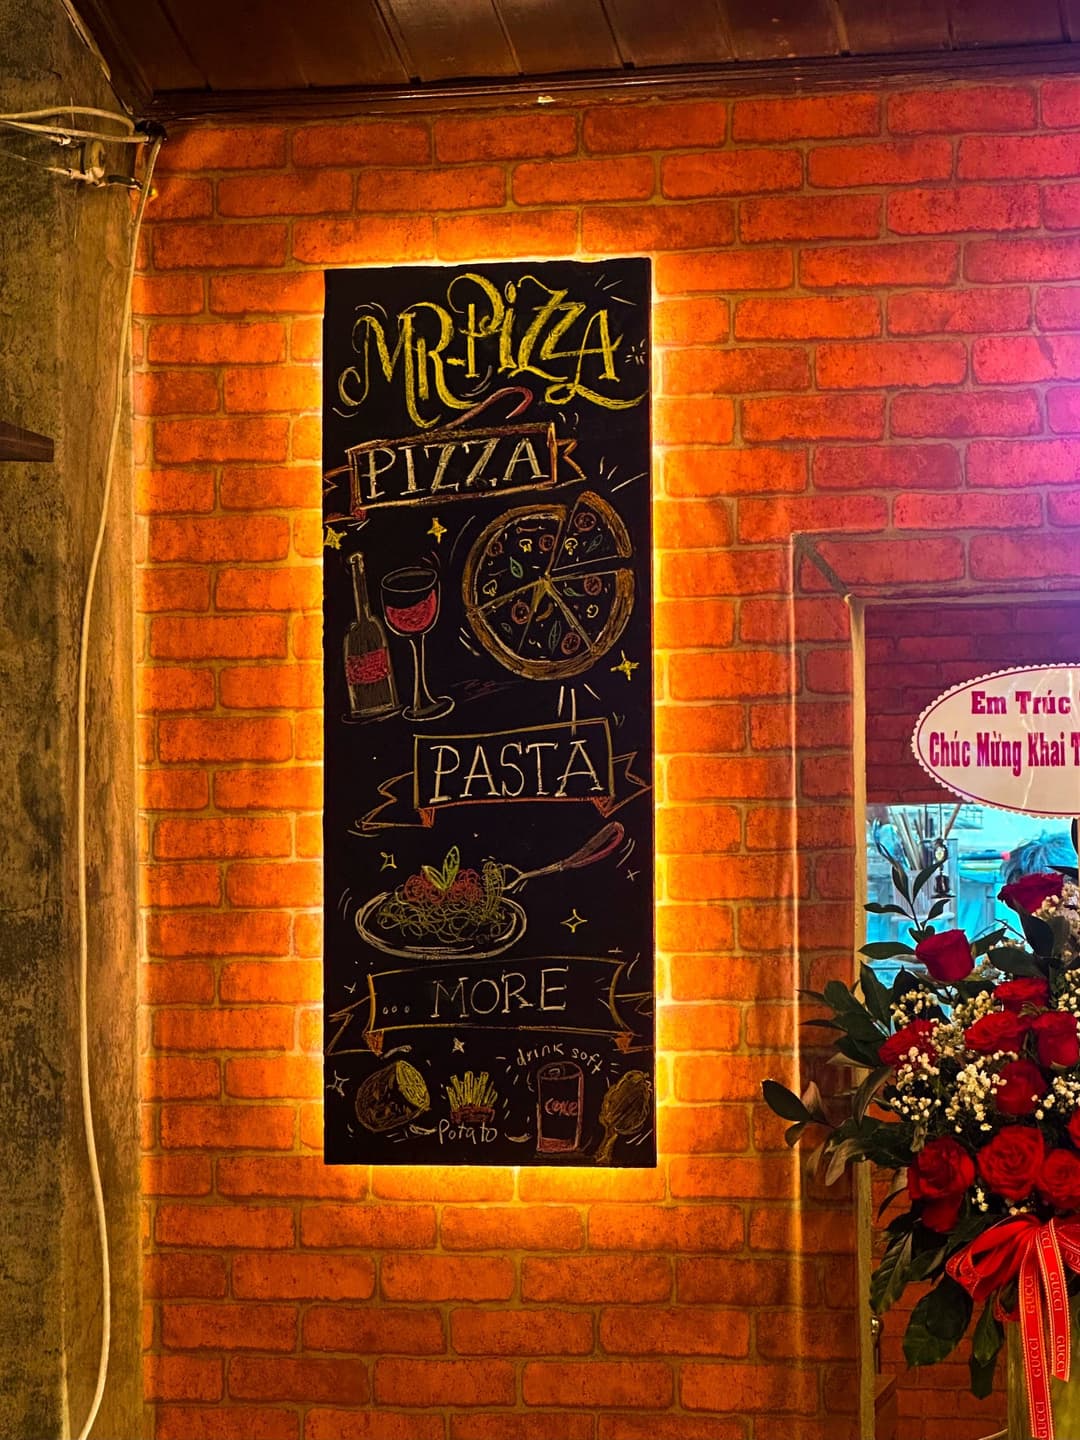 MR-PiZZA
PIZZA
PASTA
... MORE
drink soft
coke
Potato
Em Trúc
Chúc Mừng Khai T
GUCCI
GUCCI
GUCCI
GUCCI